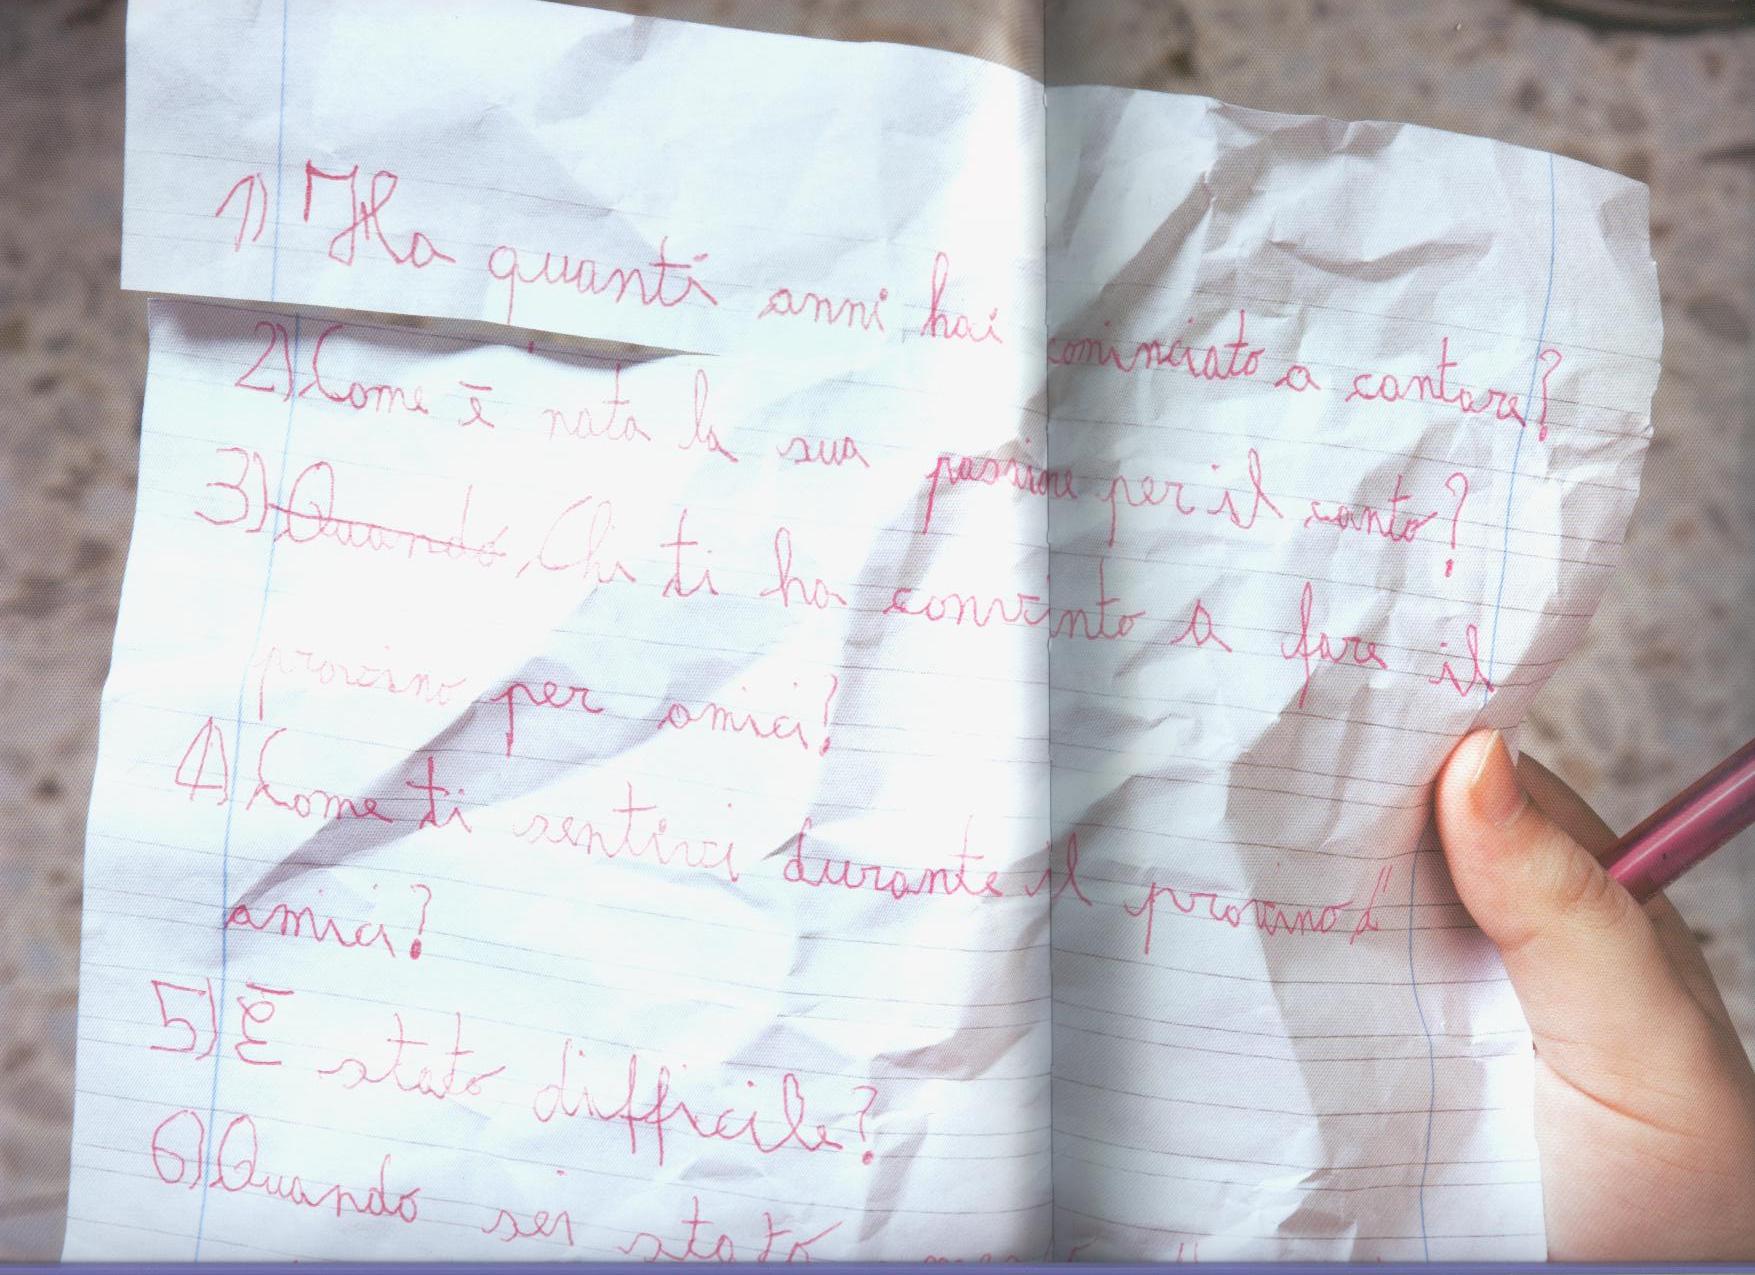 1) "Ha quanti anni hai cominciato a cantare?
2) Come è nata la sua passione per il canto?
3) Quando, Chi ti ha convinto a fare il
provino per amici?
4) Come ti sentivi durante il provino d"
amici?
5) È stato difficile?
6) Quando sei stato